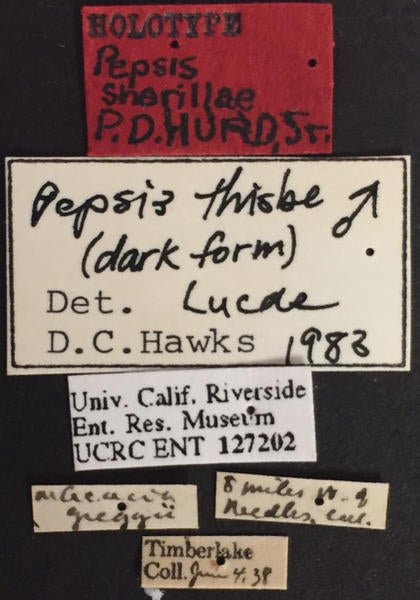 HOLOTYPE
Pepsis
sherillae
P.D. HURD, Jr.
Pepsis thisbe ♂
(dark form)
Det. Lucae
D.C. Hawks 1983
Univ. Calif. Riverside
Ent. Res. Museum
UCRC ENT 127202
on Acacia
greggii
8 miles W. of
Needles, Cal.
Timberlake
Coll. June 4, 38